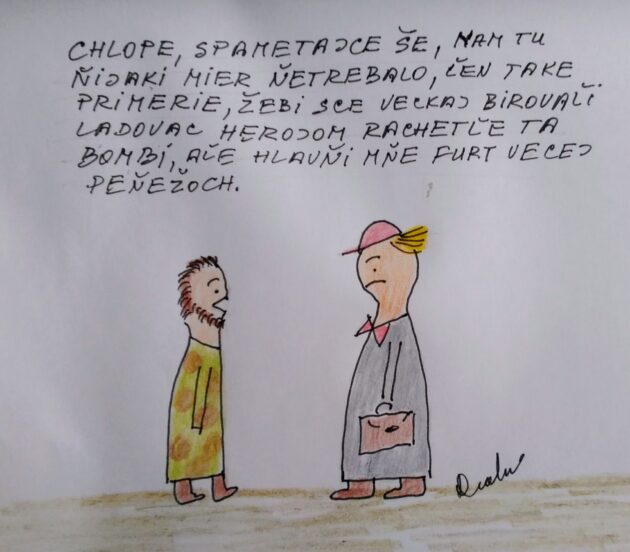 CHLOPE, SPAMETAJCE ŠE, NAM TU
ŇIJAKI MIER ŇETREBALO, ĽEN TAKE
PRIMERIE, ŽEBI SCE VECKAJ BIROVAĽI
LADOVAC HEROJOM RACHETĽE TA
BOMBI, AĽE HLAVŇI MŇE FURT VECEJ
PEŇEŽOCH.